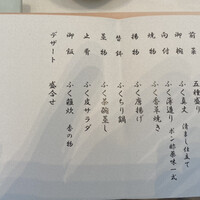 前菜　五種盛り
御椀　ふく真丈　清まし仕立て
向付　ふく薄造り　ポン酢薬味一式
焼物　ふく香草焼き
揚物　ふく唐揚げ
替鉢　ふくちり鍋
蒸物　ふく茶碗蒸し
止肴　ふく皮サラダ
御飯　ふく雑炊　香の物
デザート　盛合せ